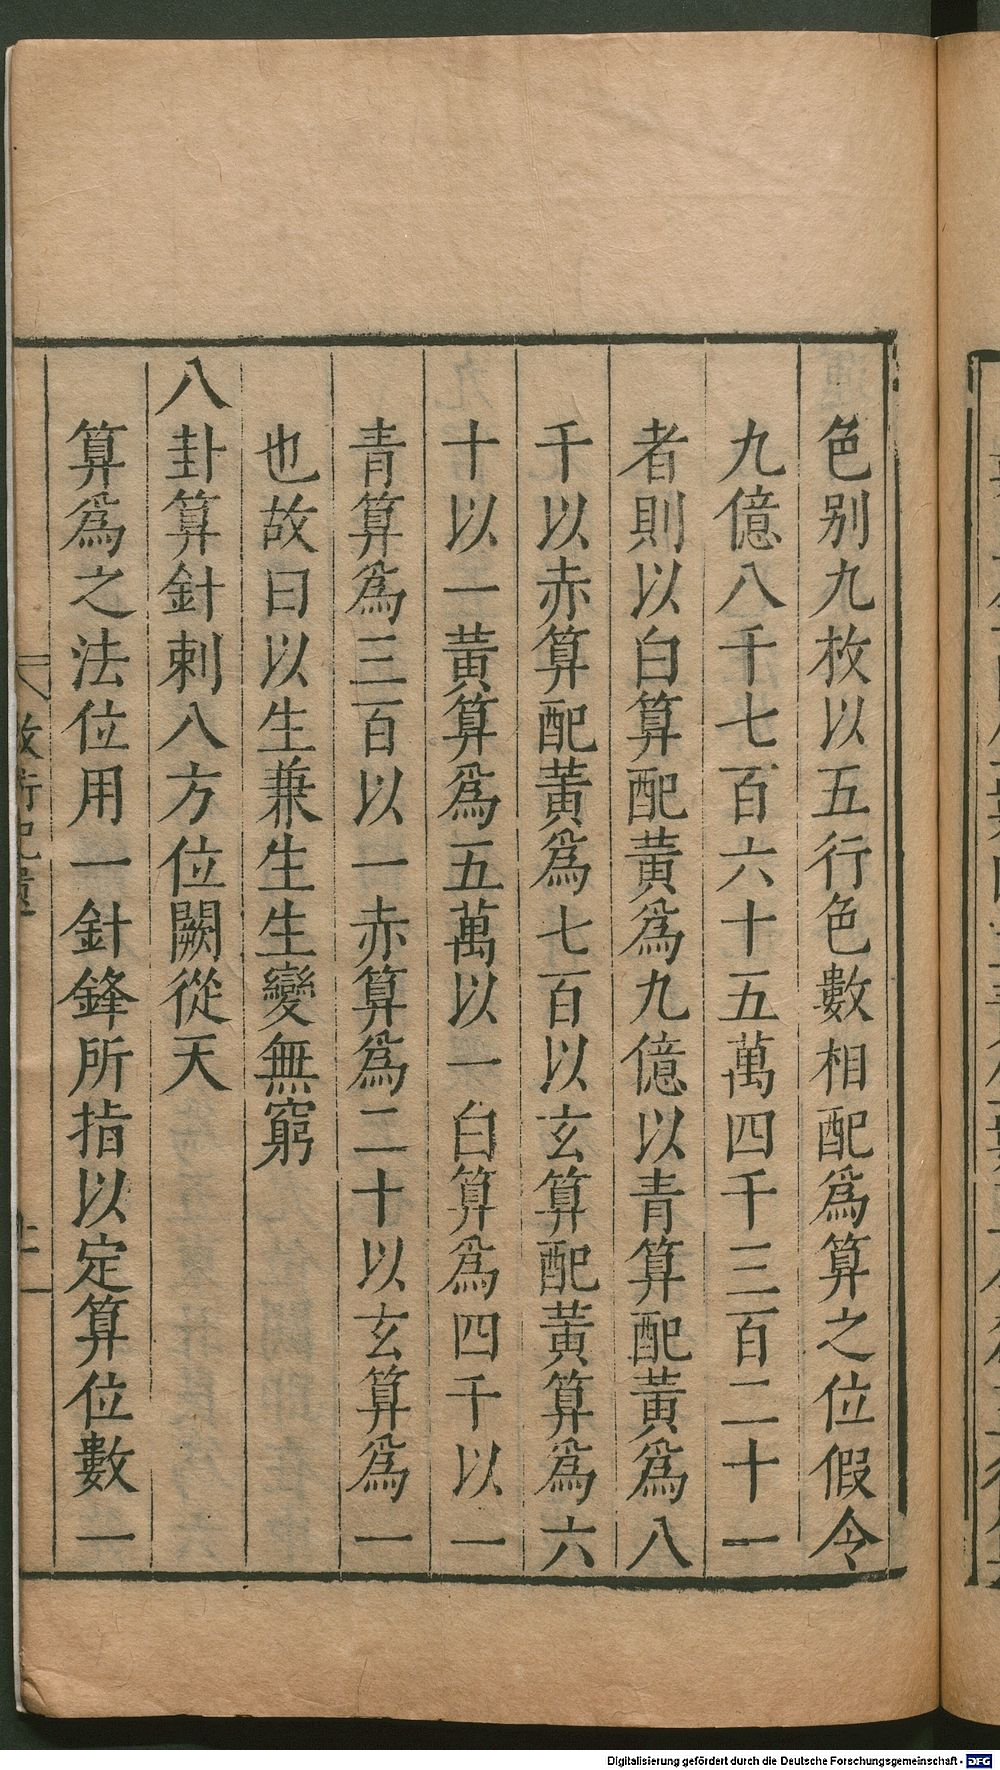 色别九枚以五行色數相配爲算之位假令
九億八千七百六十五萬四千三百二十一
者則以白算配黃爲九億以青算配黃爲八
千以赤算配黃爲七百以玄算配黃算爲六
十以一黃算爲五萬以一白算爲四千以一
青算爲三百以一赤算爲二十以玄算爲一
也故曰以生兼生生變無窮
八卦算針刺八方位闕從天
算爲之法位用一針鋒所指以定算位數一
數術記遺
Digitalisierung gefördert durch die Deutsche Forschungsgemeinschaft - DFG